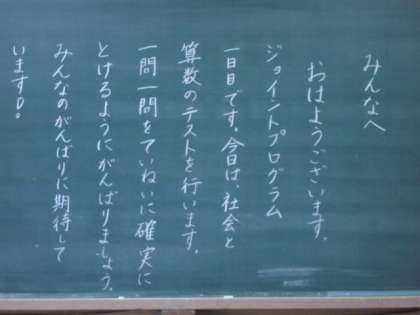 みんなへ
おはようございます。
ジョイントプログラム
一日目です。今日は、社会と
算数のテストを行います。
一問一問をていねいに確実に
とけるようにがんばりましょう。
みんなのがんばりに期待して
います!